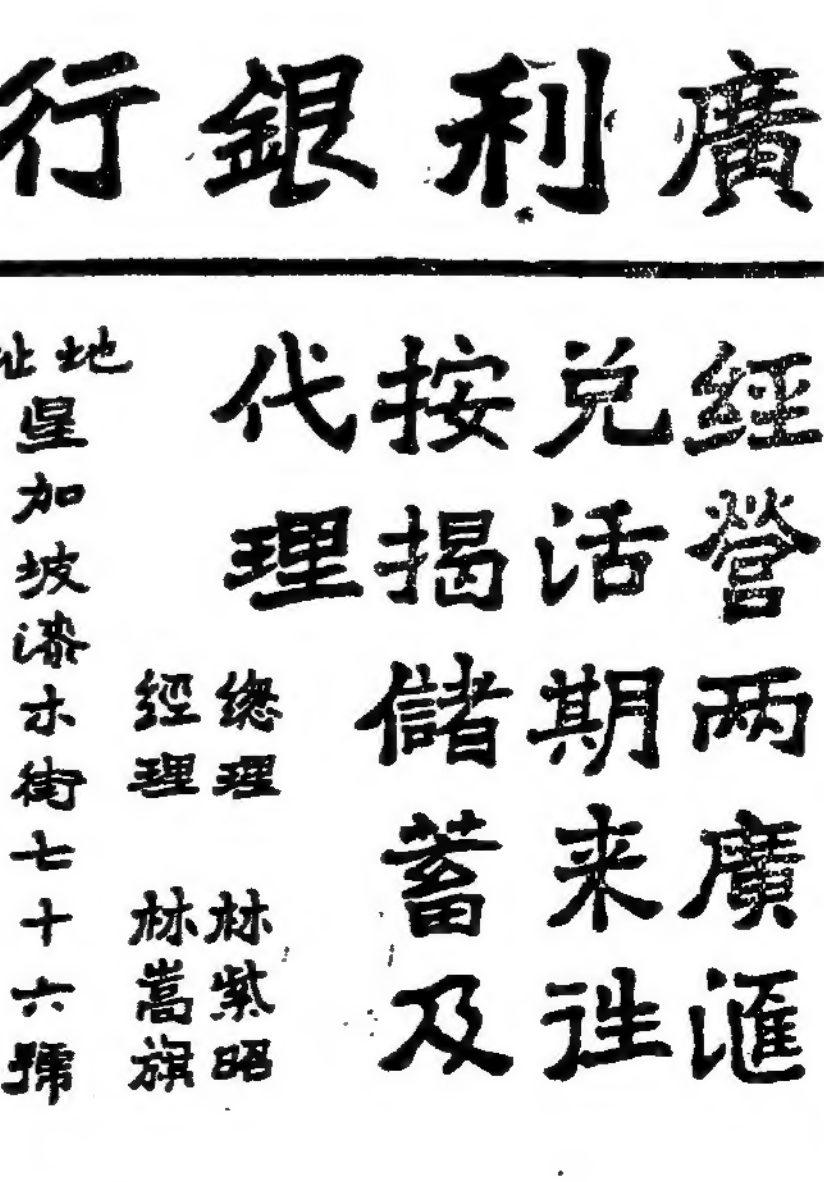 廣利銀行
經營两廣滙
兑活期来徃
按揭儲蓄及
代理
總理 林紫昭
經理 林嵩旗
地址
星加坡漆木街七十六號